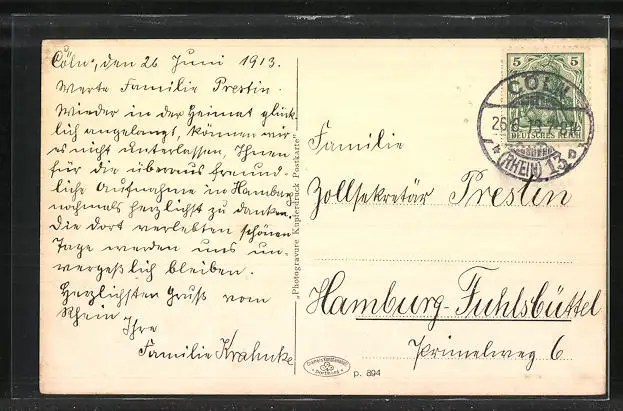 Cöln, den 26 Juni 1913.
Werte Familie Prestin.
Wieder in der Heimat glück-
lich angelangt, können wir
es nicht unterlassen, Ihnen
für die überaus freund-
liche Aufnahme in Hamburg
nochmals herzlichst zu danken.
Die dort verlebten schönen
Tage werden uns un-
vergeßlich bleiben.
Herzlichsten Gruß vom
Rhein
Ihre
Familie Krahnke
„Photogravure Kupferdruck Postkarte“
5 5
DEUTSCHES REICH
CÖLN
26.6.13
(RHEIN) 13
Familie
Zollsekretär Prestin
Hamburg-Fuhlsbüttel
Primelweg 6
p. 894